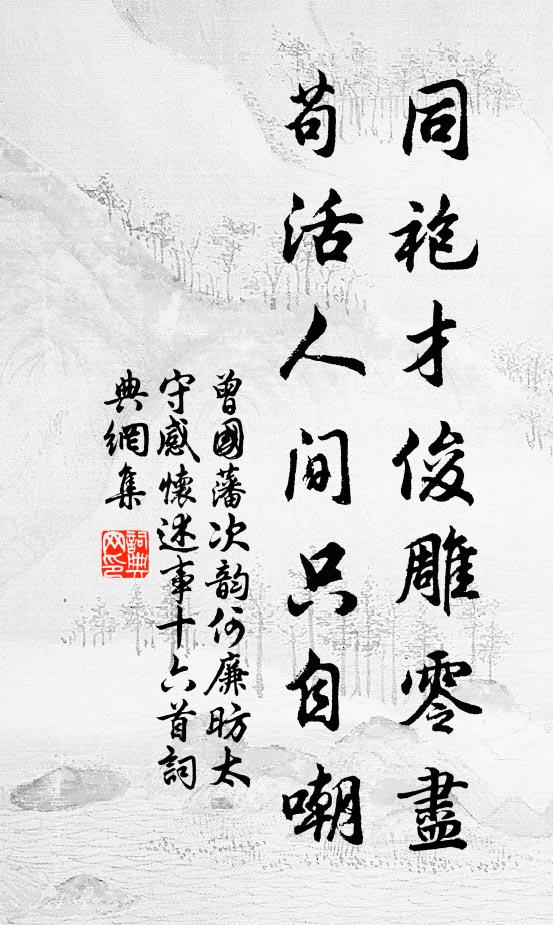 同袍才俊雕零盡
苟活人間只自嘲
曾國藩次韵何廉昉太
守感懷述事十六首詞
典網集
詞典
网印